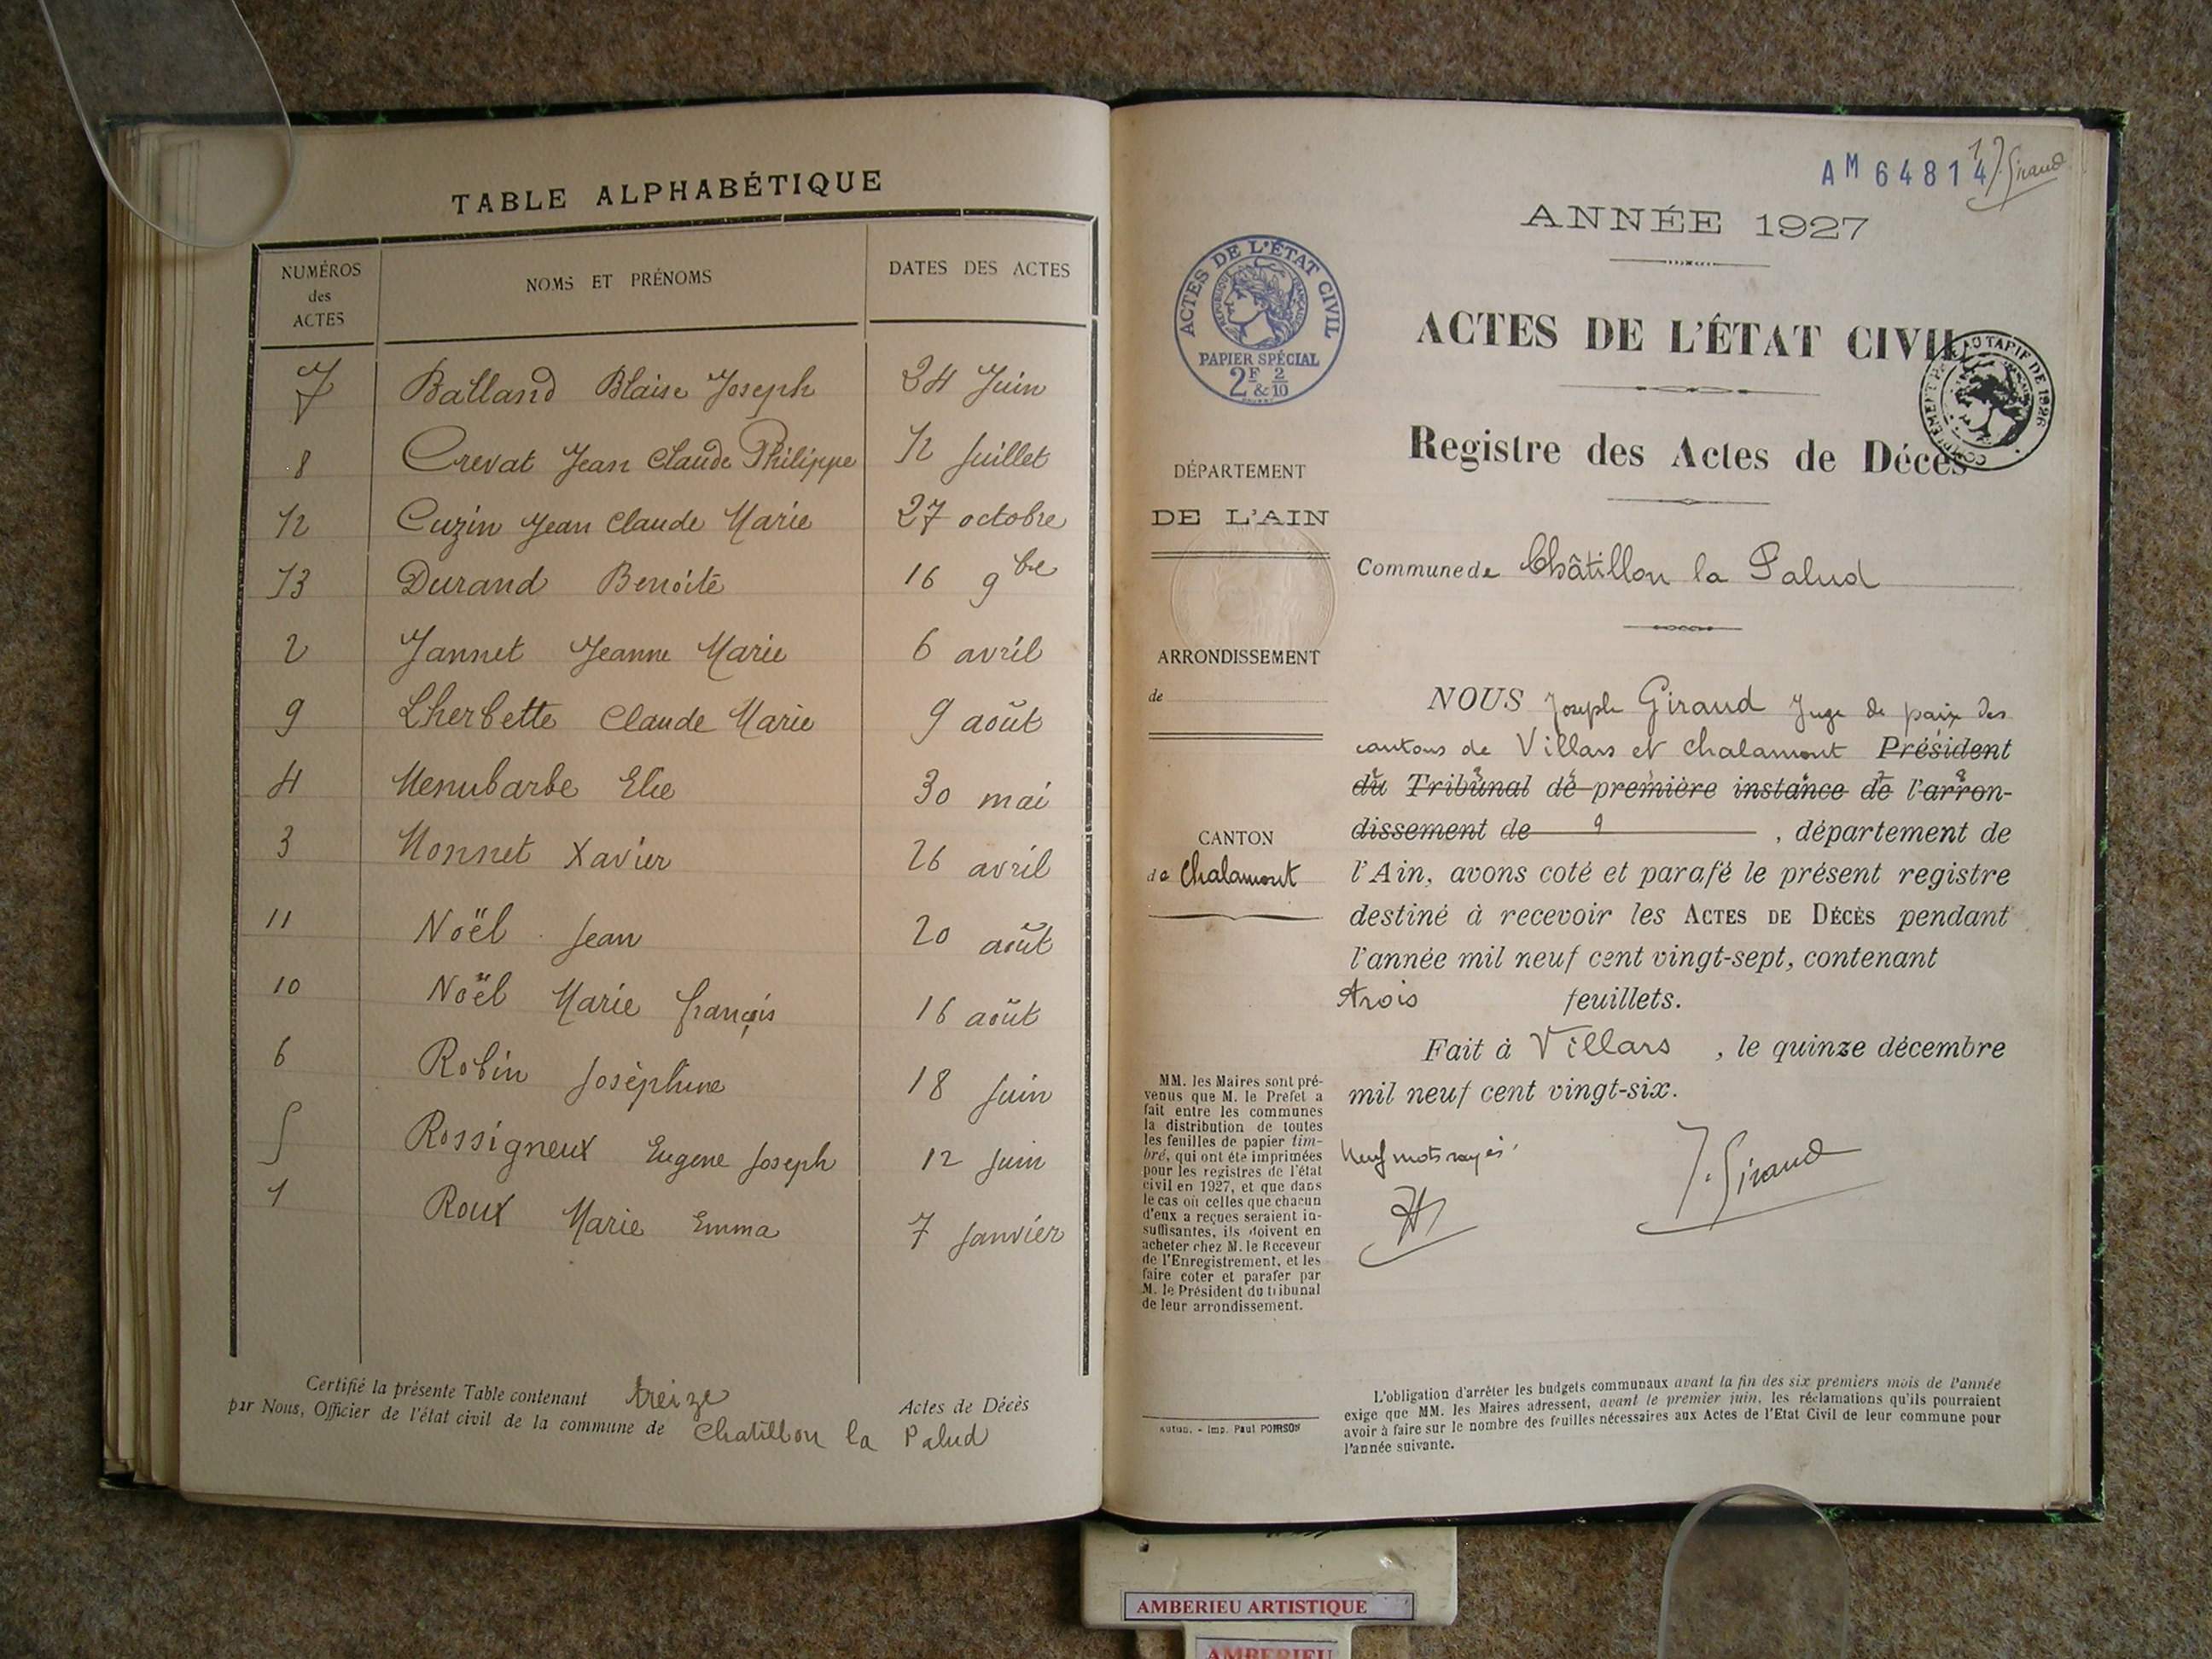 TABLE ALPHABÉTIQUE
NUMÉROS des ACTES NOMS ET PRÉNOMS DATES DES ACTES
7 Balland Blaise Joseph 24 Juin
8 Crevat Jean Claude Philippe 12 Juillet
12 Cuzin Jean Claude Marie 27 octobre
13 Durand Benoite 16 9bre
2 Jannet Jeanne Marie 6 avril
9 Lherbette Claude Marie 9 août
4 Menubarbe Elie 30 mai
3 Monnet Xavier 26 avril
11 Noël Jean 20 août
10 Noël Marie françois 16 août
6 Robin Joséphine 18 Juin
5 Rossigneux Eugene Joseph 12 Juin
1 Roux Marie Emma 7 Janvier
Certifié la présente Table contenant treize Actes de Décès
par Nous, Officier de l'état civil de la commune de Chatillon la Palud
AM 64814
1 J. Giraud
ANNÉE 1927
ACTES DE L'ÉTAT CIVIL
RÉPUBLIQUE FRANÇAISE
PAPIER SPÉCIAL
2F & 2/10
ACTES DE L'ÉTAT CIVIL
COMPLÉMENT AU TARIF DE 1926
Registre des Actes de Décès
DÉPARTEMENT
DE L'AIN
Commune de Châtillon la Palud
ARRONDISSEMENT
de
CANTON
de Chalamont
NOUS Joseph Giraud Juge de paix des
cantons de Villars et Chalamont Président
du Tribunal de première instance de l'arron-
dissement de 9 , département de
l'Ain, avons coté et parafé le présent registre
destiné à recevoir les ACTES DE DÉCÈS pendant
l'année mil neuf cent vingt-sept, contenant
trois feuillets.
Fait à Villars , le quinze décembre
mil neuf cent vingt-six.
Neuf mots rayés
J. Giraud
MM. les Maires sont pré-
venus que M. le Préfet a
fait entre les communes
la distribution de toutes
les feuilles de papier tim-
bré, qui ont été imprimées
pour les registres de l'état
civil en 1927, et que dans
le cas où celles que chacun
d'eux a reçues seraient in-
suffisantes, ils doivent en
acheter chez M. le Receveur
de l'Enregistrement, et les
faire coter et parafer par
M. le Président du tribunal
de leur arrondissement.
Autun. - Imp. Paul POIRSON
L'obligation d'arrêter les budgets communaux avant la fin des six premiers mois de l'année
exige que MM. les Maires adressent, avant le premier juin, les réclamations qu'ils pourraient
avoir à faire sur le nombre des feuilles nécessaires aux Actes de l'Etat Civil de leur commune pour
l'année suivante.
AMBERIEU ARTISTIQUE
AMBERIEU